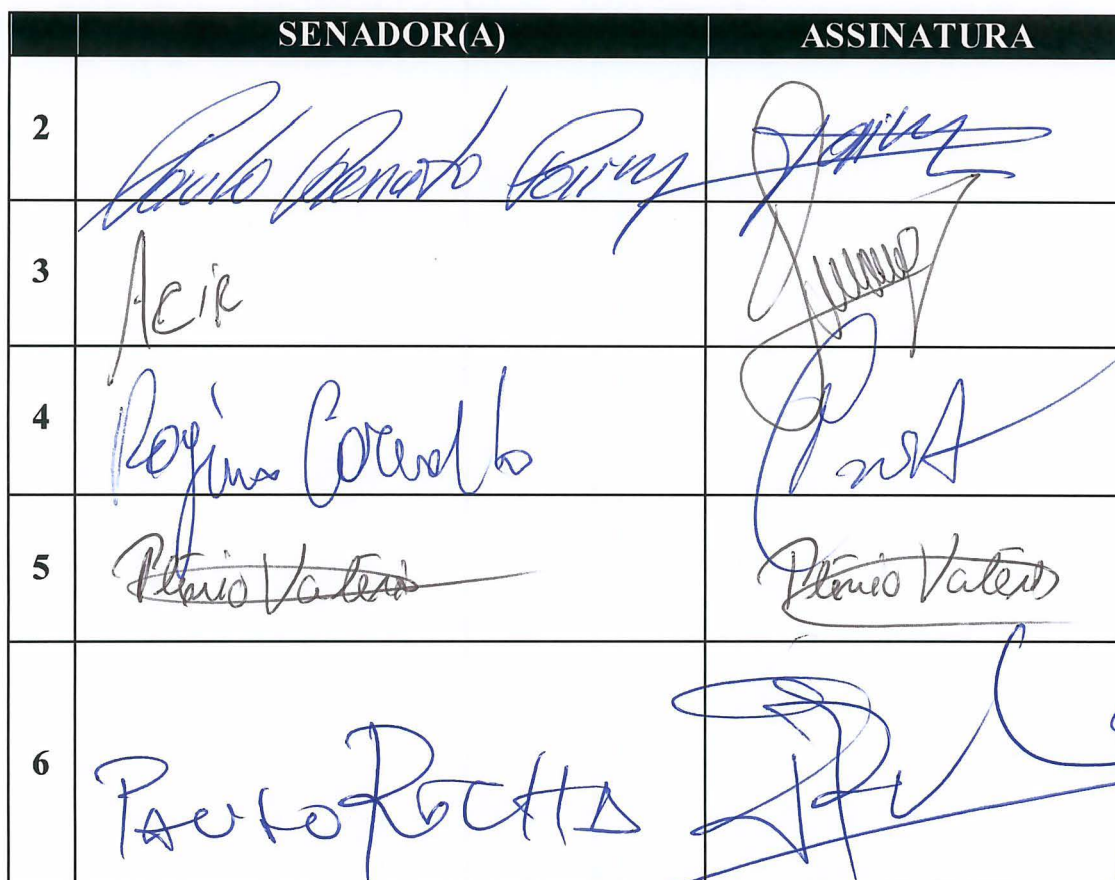 SENADOR(A) ASSINATURA
2 Paulo Renato Paim Paim
3 ACIR
4 Rogério Carvalho
5 Plínio Valério Plínio Valério
6 PAULO ROCHA